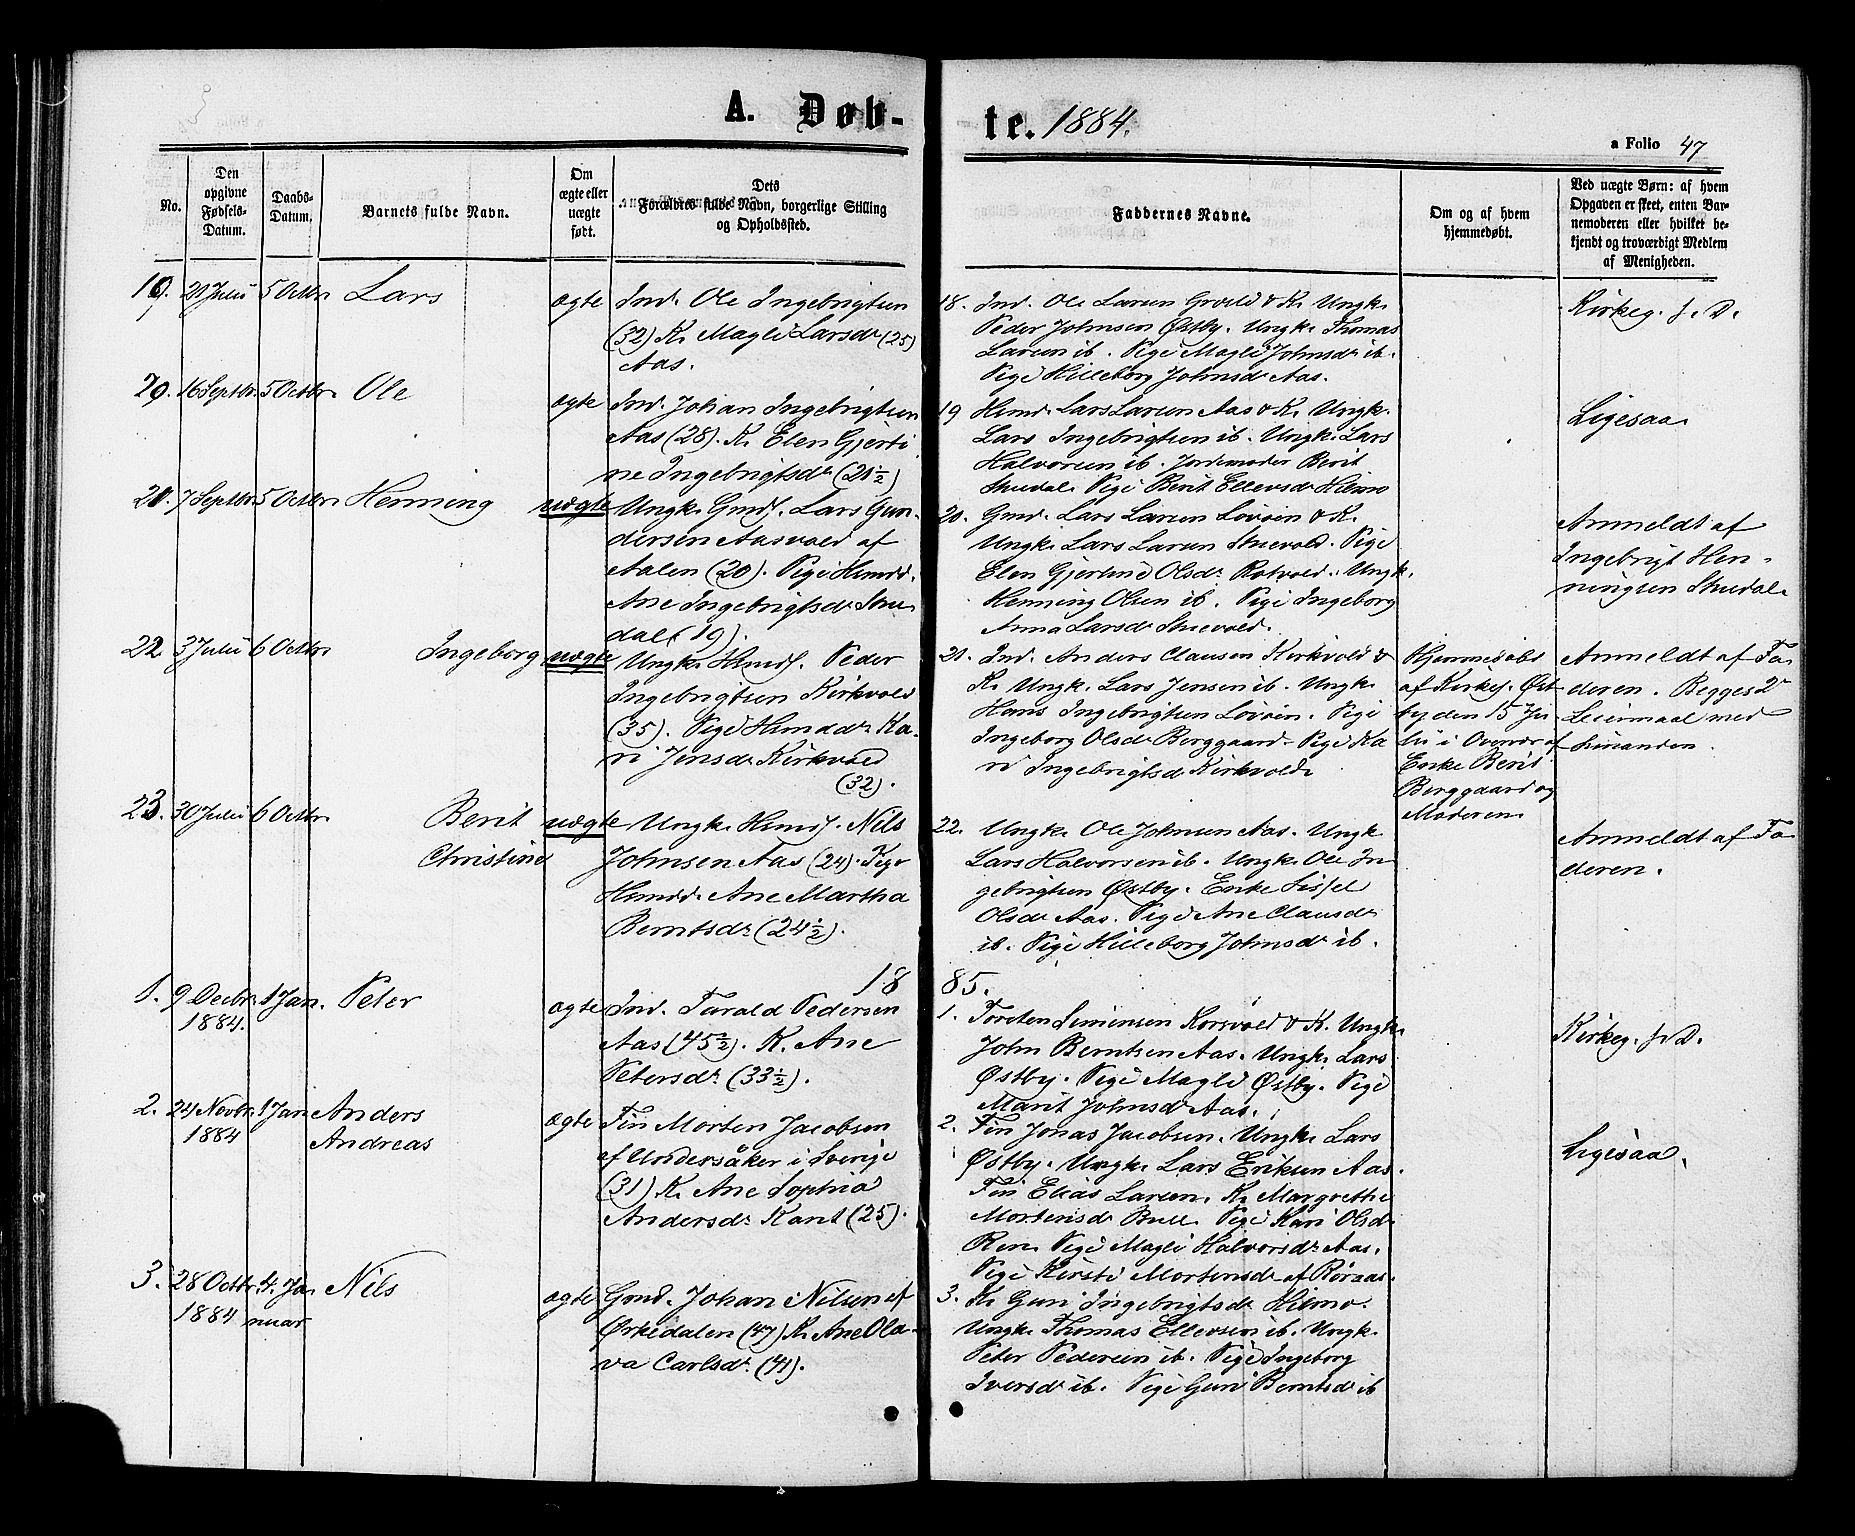 A. Døb-
te. 1884.
a Folio 47
No.
Den
opgivne
Fødsels-
Datum.
Daabs-
Datum.
Barnets fulde Navn.
Om
ægte eller
uægte
født.
Dets
Forældres fulde Navn, borgerlige Stilling
og Opholdssted.
Faddernes Navne.
Om og af hvem
hjemmedøbt.
Ved uægte Børn: af hvem
Opgaven er skeet, enten Bar-
nemoderen eller hvilket be-
kjendt og troværdigt Medlem
af Menigheden.
19. 21 Julii 5 Octbr Lars ægte Ind. Ole Ingebrigtsen
(32) K. Magli Larsdr (25)
Aas.
18. Ind. Ole Larsen Grøeld & K. Ungk.
Peder Johnsen Østby. Ungk. Thomas
Larsen ib. Pige Magli Johnsdr ib.
Pige Hilleborg Johnsdr Aas.
Kirkeg. f. D.
20. 16 Septbr. 5 Octbr Ole ægte Ind. Johan Ingebrigtsen
Aas (28). K. Elen Gjerti
ne Ingebrigtsdr (21½)
19 Hmd. Lars Larsen Aas & K. Ungk.
Lars Ingebrigtsen ib. Ungk. Lars
Halvorsen ib. Jordemoder Berit
Stuedal. Pige Berit Ellevsdr Hilmo
Ligesaa.
21. 7 Septbr 5 Octbr Henning uægte Ungk. Gmds. Lars Gun-
dersen Aasvold af
Aalen (20). Pige Hmdd.
Ane Ingebrigtsdr Stue
dal (19).
20. Gmd. Lars Larsen Løvøen & K.
Ungk. Lars Larsen Stuevold. Pige
Elen Gjertine Olsdr Rotvold. Ungk.
Henning Olsen ib. Pige Ingeborg
Anna Larsdr Stuevold.
Anmeldt af
Ingebrigt Hen-
ningsen Stuedal
22. 3 Julii 6 Octbr Ingeborg uægte Ungk. Hmds. Peder
Ingebrigtsen Kirkvold
(35). Pige Hmdd. Ka-
ri Jensdr Kirkvold
(32).
21. Ind. Anders Clausen Kirkvold &
K. Ungk. Lars Jensen ib. Ungk.
Hans Ingebrigtsen Løvøen. Pige
Ingeborg Olsdr Berggaard. Pige Ka
ri Ingebrigtsd Kirkvold.
Hjemmedøbt
af Kirkes. Øst
by den 15 Ju
lii i Overvær af
Enke Berit
Berggaard og
Moderen.
Anmeldt af Fa
deren. Begges 2det
Leiermaal med
hinanden.
23. 30 Julii 6 Octbr Berit uægte Ungk. Hmds. Nils
Christine Johnsen Aas (24). Pige
Hmdd. Ane Martha
Berntsdr (24½).
22. Ungk. Ole Johnsen Aas. Ungk.
Lars Halvorsen ib. Ungk. Ole In
gebrigtsen Østby. Enke Sissel
Olsdr Aas. Pige Ane Clausdr
ib. Pige Hilleborg Johnsdr ib.
Anmeldt af Fa
deren.
1885.
1. 9 Decbr. 1 Jan. Peter ægte Ind. Tarald Pedersen
1884. Aas (45½). K. Ane
Petersdr (33½).
1. Torsten Simensen Korsvold & K. Ungk.
John Berntsen Aas. Ungk. Lars
Østby. Pige Magli Østby. Pige
Marit Johnsdr Aas.
Kirkeg. f. D.
2. 24 Novbr. 1 Jan Anders ægte Fin Morten Jacobsen
1884 Andreas af Undersåker i Sverige
(31) K. Ane Sophia
Andersdr Kant (25).
2. Fin Jonas Jacobsen. Ungk. Lars
Østby. Ungk. Lars Eriksen Aas.
Fin Elias Larsen. K. Margrethe
Mortensdr Bull. Pige Kari Olsdr
Ren. Pige Magli Halvorsdr Aas.
Pige Kirsti Mortensdr af Røraas.
Ligesaa.
3. 28 Octbr. 4. Ja Nils ægte Gmd. Johan Nilsen af
1884 nuar Ørkedalen (47) K. Ane Ola-
va Carlsdr (41).
3. K. Guri Ingebrigtsdr Hilmo.
Ungk. Thomas Ellevsen ib. Ungk.
Peter Pedersen ib. Pige Ingeborg
Iversdr ib. Pige Guri Berntsdr ib